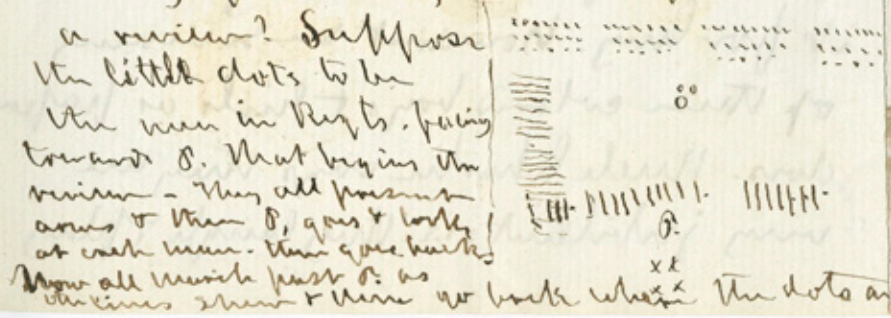 a review? Suppose
the little dots to be
the men in Regts. facing
towards P. That begins the
review - They all present
arms & then P. goes & looks
at each man. then goes back.
Now all march past P. as
the lines show & then go back where the dots a
P.